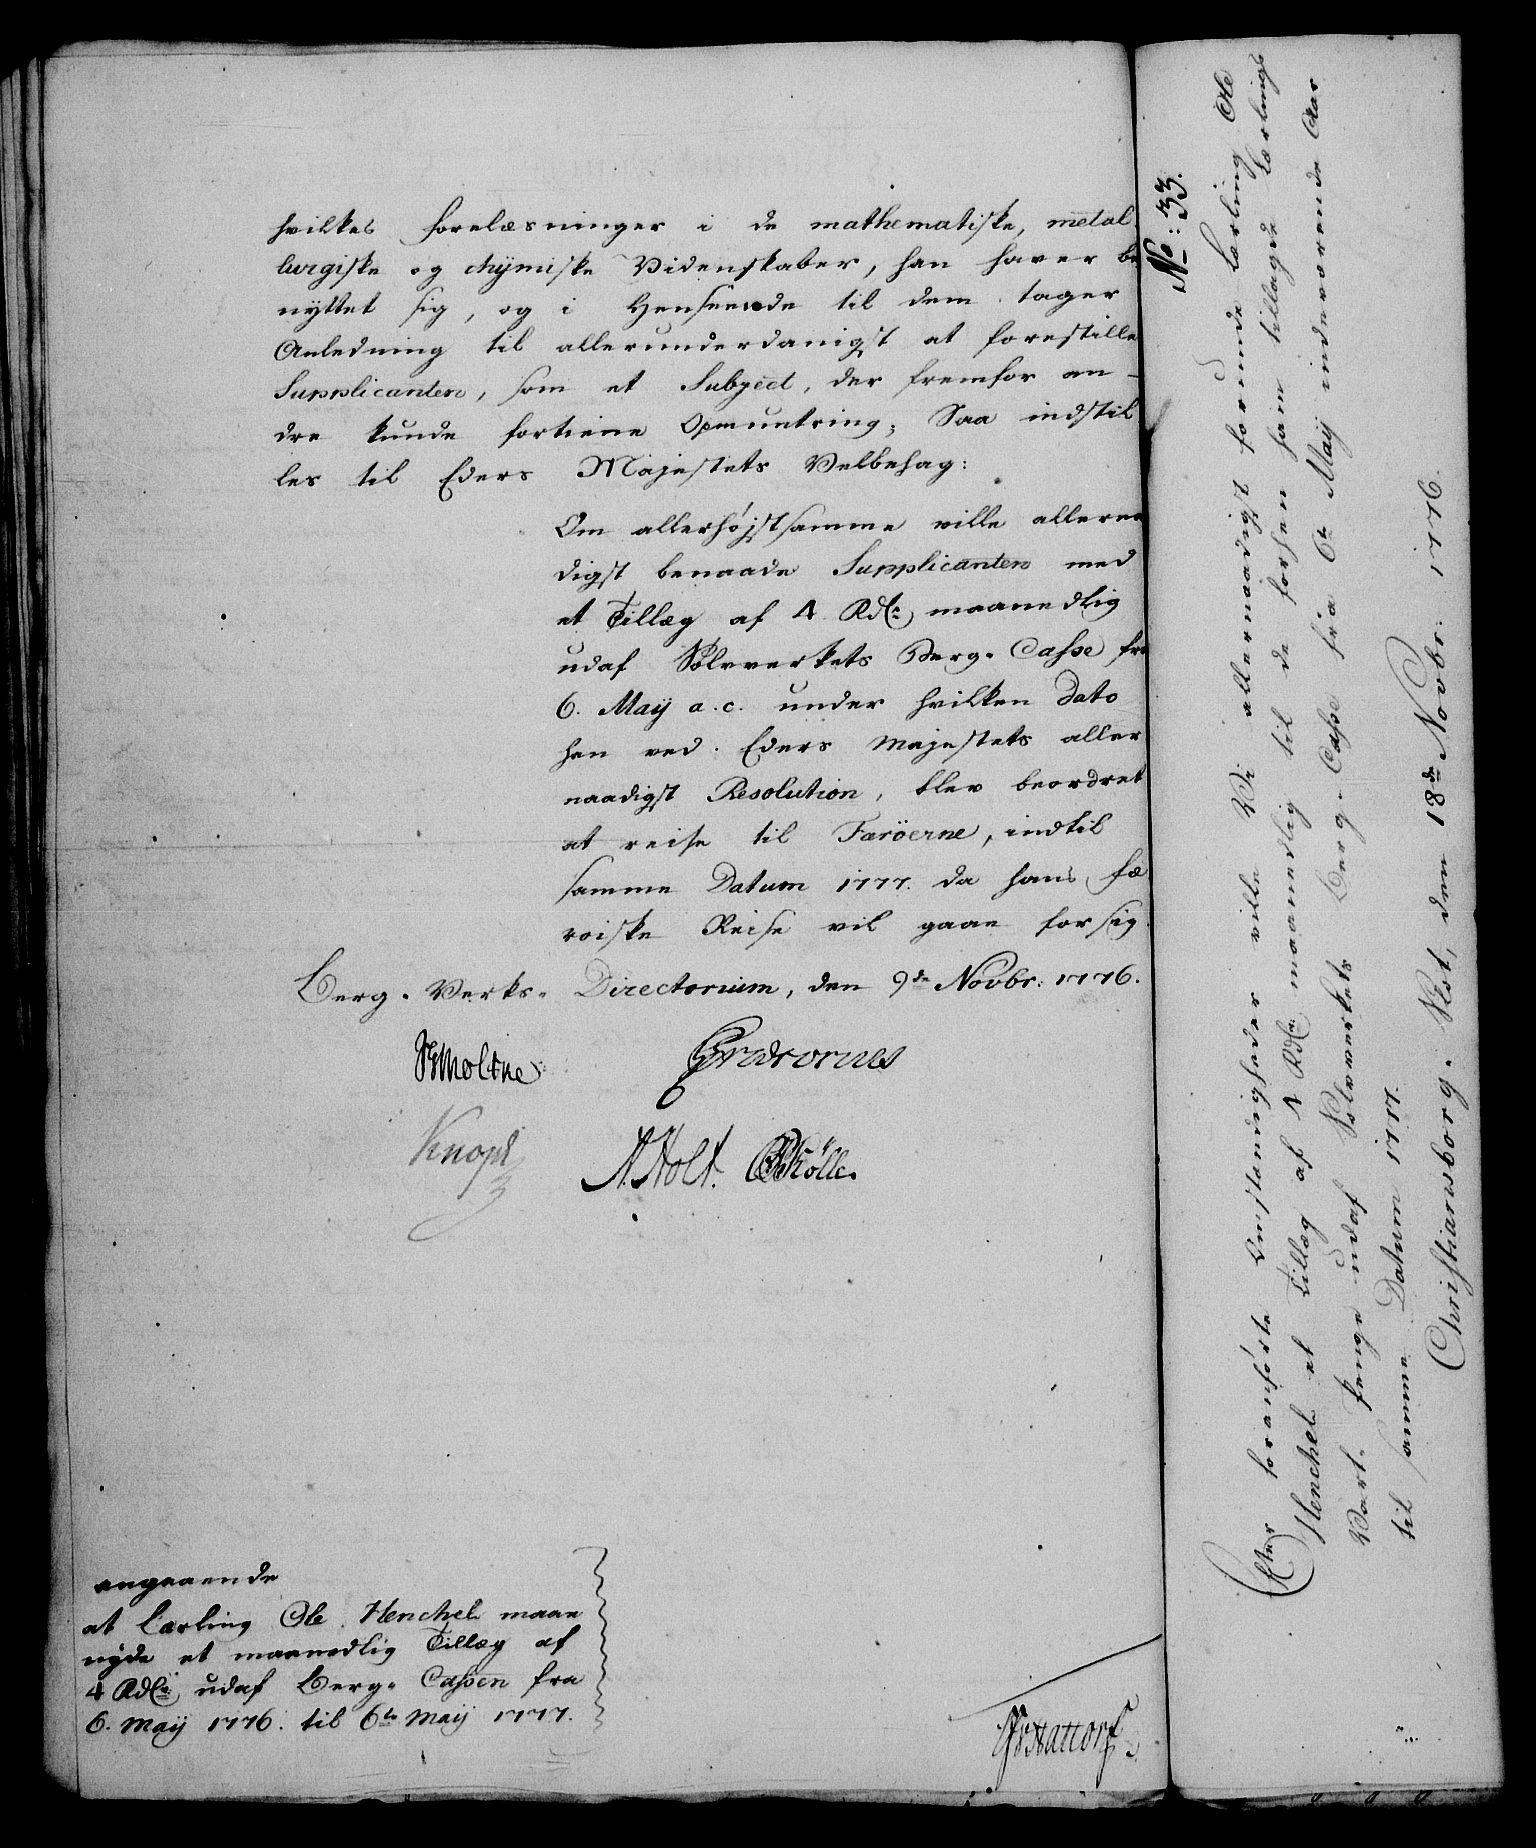 hvilkes forelæsninger i de mathematiske, metal
lurgiske og chÿmiske Videnskaber, han haver be
nyttet sig, og i Henseende til dem tager
Anledning til allerunderdanigst at forestille
Supplicanten, som et Subject, der fremfor an-
dre kunde fortiene Opmuntring; Saa indstil
les til Eders Majestets Velbehag:
Om allerhøjstsamme ville allerna
digst benaade Supplicanten med
et Tillæg af 4 Rdlr maanedlig
udaf Sølvverkets Berg-Casse fra
6. Maÿ a.c. under hvilken Dato
han ved Eders Majestets aller
naadigst Resolution, blev beordret
at reise til Færöerne, indtil
samme Datum 1777. da hans fæ
roiske Reise vil gaae for sig.
Berg-Verks-Directorium, den 9de Novbr: 1776.
Moltke
Knoph
A. Holt.
angaaende
at Lærling Ole Henchel maae
nyde et maanedlig Tillæg af
4 Rdlr udaf Berg-Cassen fra
6. Maÿ 1776. til 6te Maÿ 1777.
No: 33.
Efter foranførte Omstændigheder ville Vi allernaadigst forunde Lærling Ole
Henchel et Tillæg af 4 Rdlr maanedlig til de forhen ham tillagde Lærlings
Vart-Penge udaf Sølvverkets Berg-Casse fra 6te Maÿ indeværende Aar
til samme Datum 1777.
Christiansborg-Slot, den 18de Novbr: 1776.